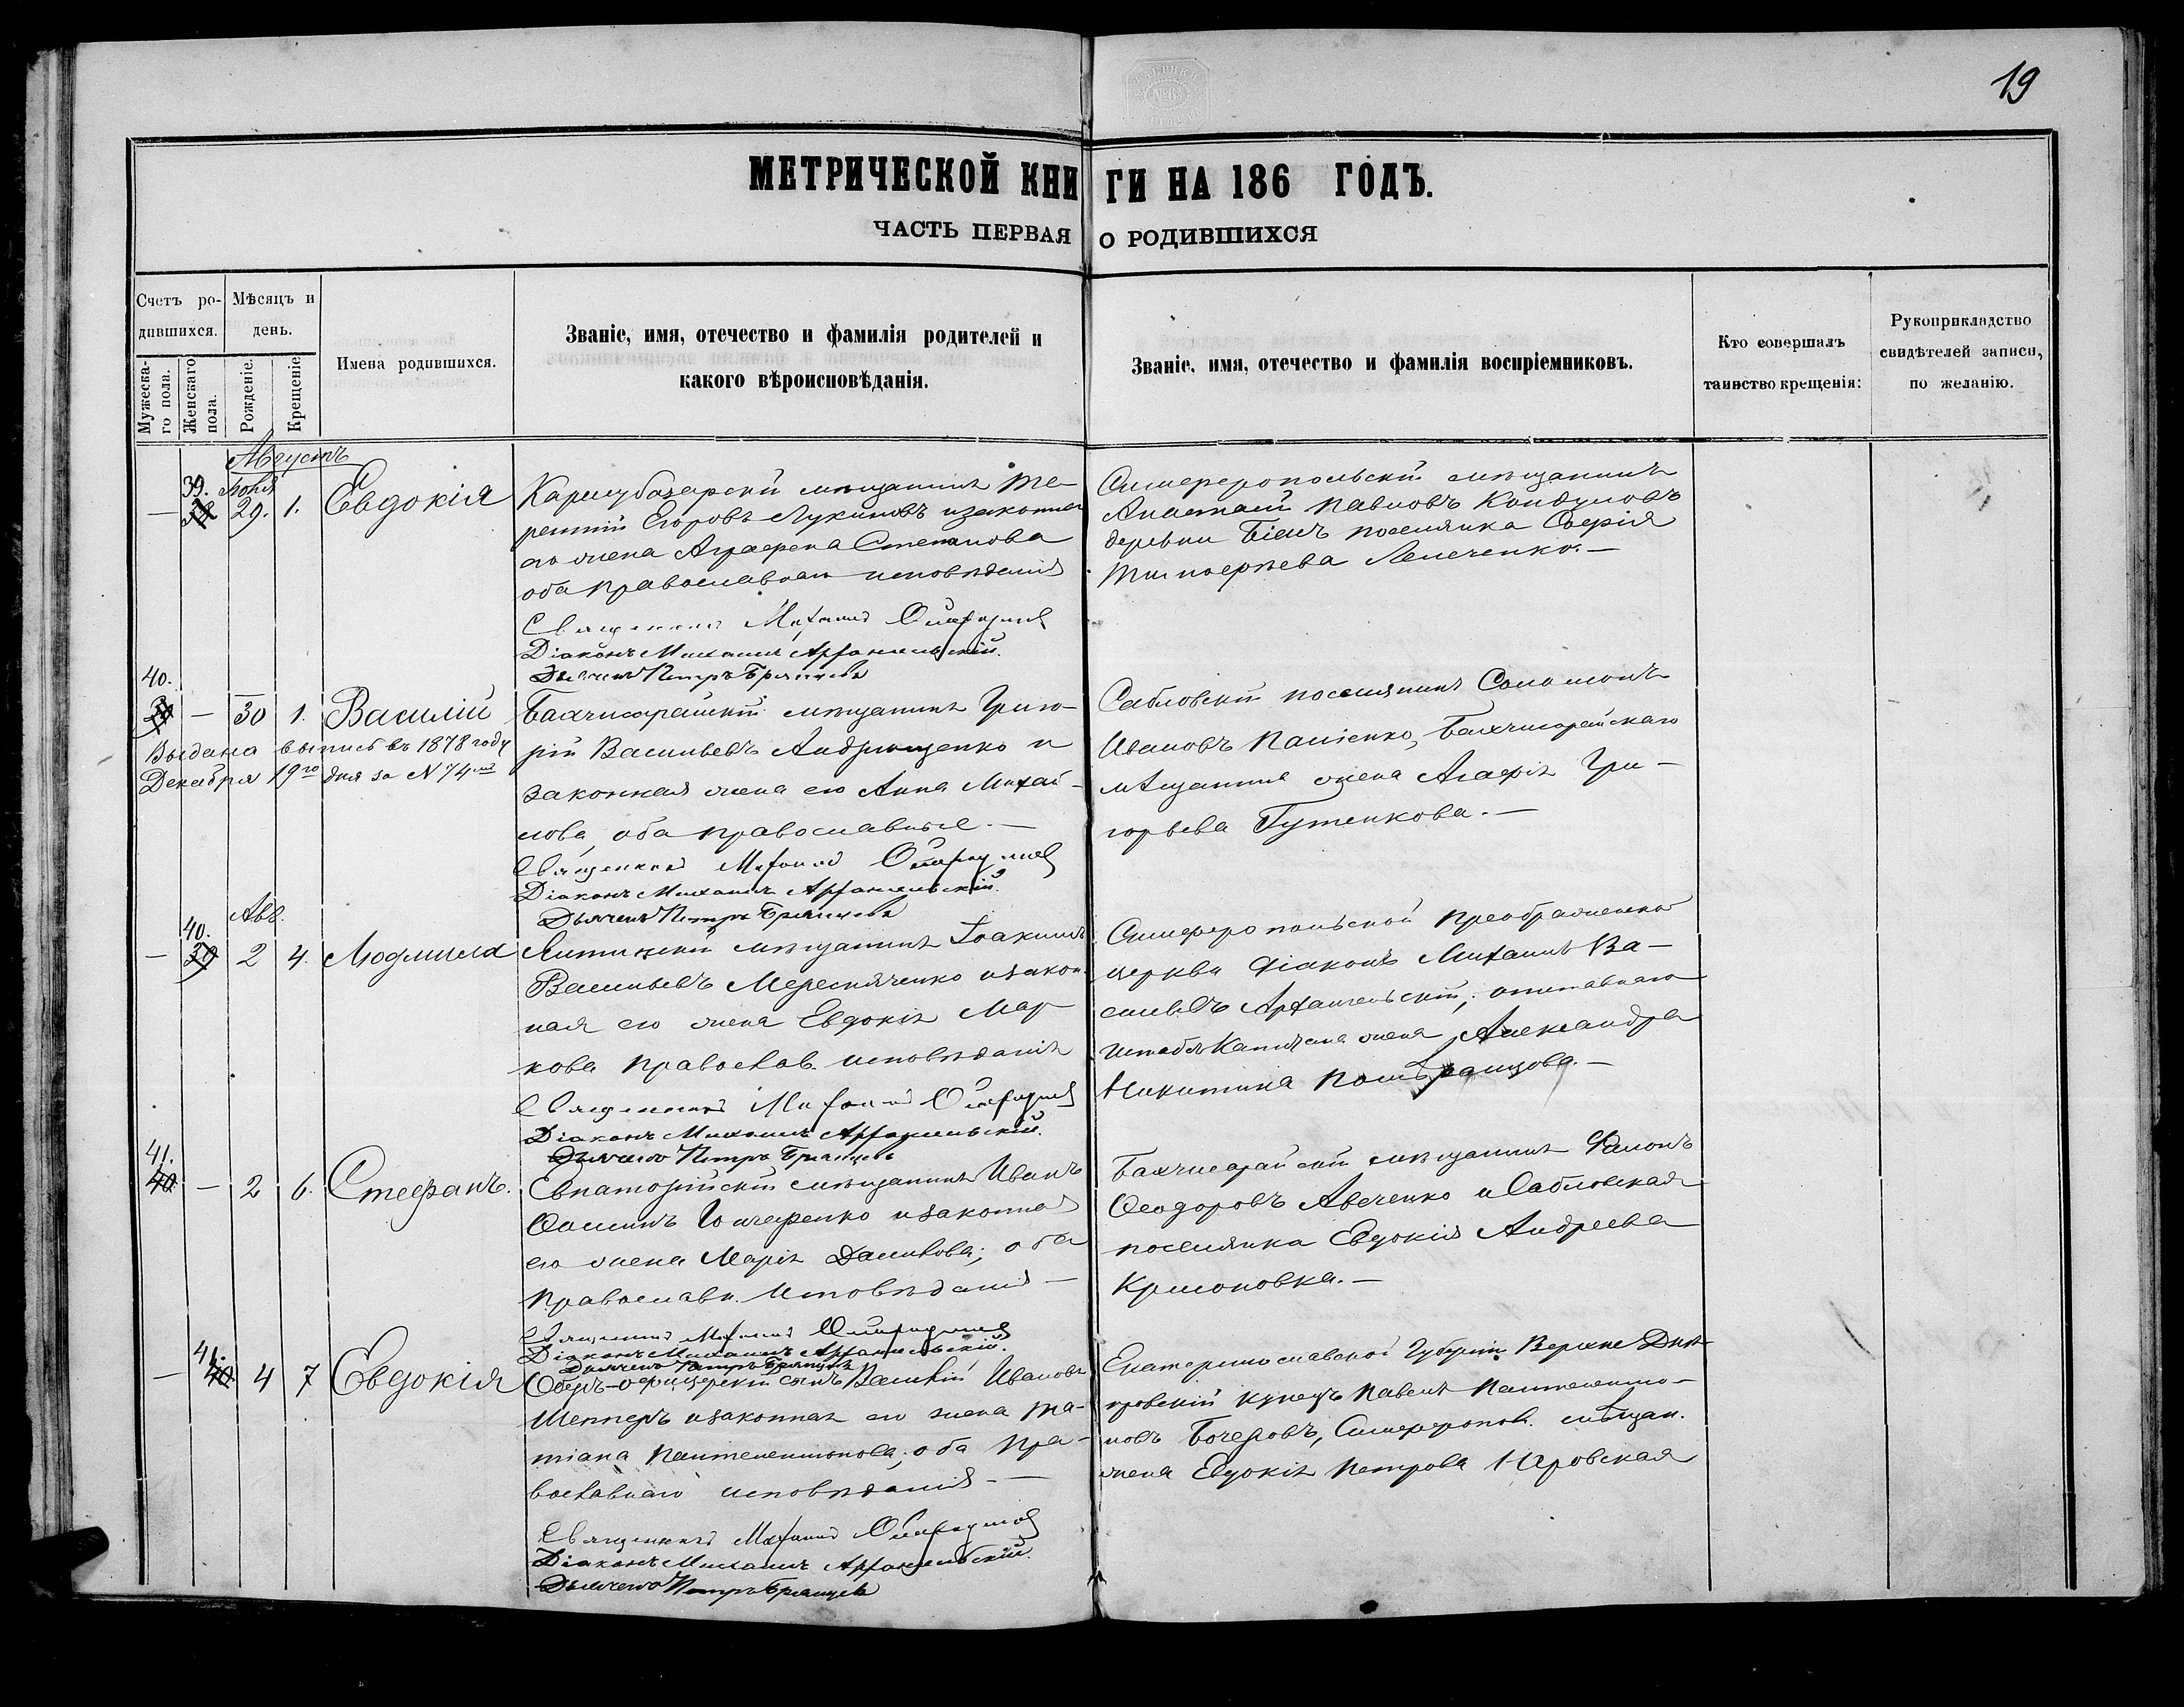 19
МЕТРИЧЕСКОЙ КНИГИ НА 186 ГОДЪ.
ЧАСТЬ ПЕРВАЯ О РОДИВШИХСЯ
Счетъ родившихся.
Мѣсяцъ и день.
Мужескаго пола.
Женскаго пола.
Рожденіе.
Крещеніе
Имена родившихся.
Званіе, имя, отечество и фамилія родителей и
какого вѣроисповѣданія.
Званіе, имя, отечество и фамилія воспріемниковъ.
Кто совершалъ
таинство крещенія:
Рукоприкладство
свидѣтелей записи,
по желанію.
Августъ
39. Іюля
— 29. 1. Евдокія
Карасубазарскій мѣщанинъ Те-
рентій Егоровъ Лукиновъ и законная
его жена Аграфена Степанова
оба православнаго исповѣданія
Священникъ Михаилъ
Діаконъ Михаилъ Архангельскій.
Дьячекъ Петръ Брянцевъ
Симферопольскій мѣщанинъ
Павловъ
деревни Біелъ поселянка Софія
Тимофеева
40.
— 30 1. Василій
Выдана выпись въ 1878 году
Декабря 19го дня за N 74
Бахчисарайскій мѣщанинъ Григо-
рій Васильевъ Андрющенко и
законная жена его Анна Михай-
лова, оба православные.—
Священникъ Михаилъ
Діаконъ Михаилъ Архангельскій.
Дьячекъ Петръ Брянцевъ
Сабловскій поселянинъ Соломонъ
Ивановъ Бахчисарайскаго
мѣщанина жена Агафія Гри-
горьева Гутенкова.—
Авг.
40.
— 39 2 4. Людмила
Ялтинскій мѣщанинъ Іоакимъ
Васильевъ и закон-
ная его жена Евдокія Мар
кова Православ. исповѣданія
Священникъ Михаилъ
Діаконъ Михаилъ Архангельскій.
Дьячекъ Петръ Брянцевъ
Симферопольской Преображенской
церкви Діаконъ Михаилъ Ва-
сильевъ Архангельскій, отставнаго
Штабсъ Капитана жена Александра
Никитина
41.
40 — 2 6. Стефанъ.
Евпаторійскій мѣщанинъ Иванъ
Гончаренко и законная
его жена Марія оба
Православн. Исповѣданія —
Священникъ Михаилъ
Діаконъ Михаилъ Архангельскій.
Дьячекъ Петръ Брянцевъ
Бахчисарайскій мѣщанинъ
Ѳеодоровъ и Сабловская
поселянка Евдокія Андреева
41.
— 40 4 7 Евдокія
Оберъ-офицерскій сынъ Василій Ивановъ
и законная его жена Та-
тіана Пантелеимонова, оба Пра-
вославнаго исповѣданія —
Священникъ Михаилъ
Діаконъ Михаилъ Архангельскій.
Дьячекъ Петръ Брянцевъ
Екатеринославской Губерніи Верхне Днѣ-
провскій купецъ Павелъ Пантелеимо-
новъ Бочеровъ, Симфероп. мѣщан.
жена Евдокія Петрова